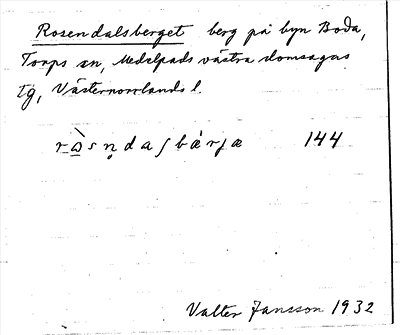 Rosendalsberget berg på byn Boda,
Torps sn, Medelpads västra domsagas
tg, Västernorrlands l.
144
Valter Jansson 1932